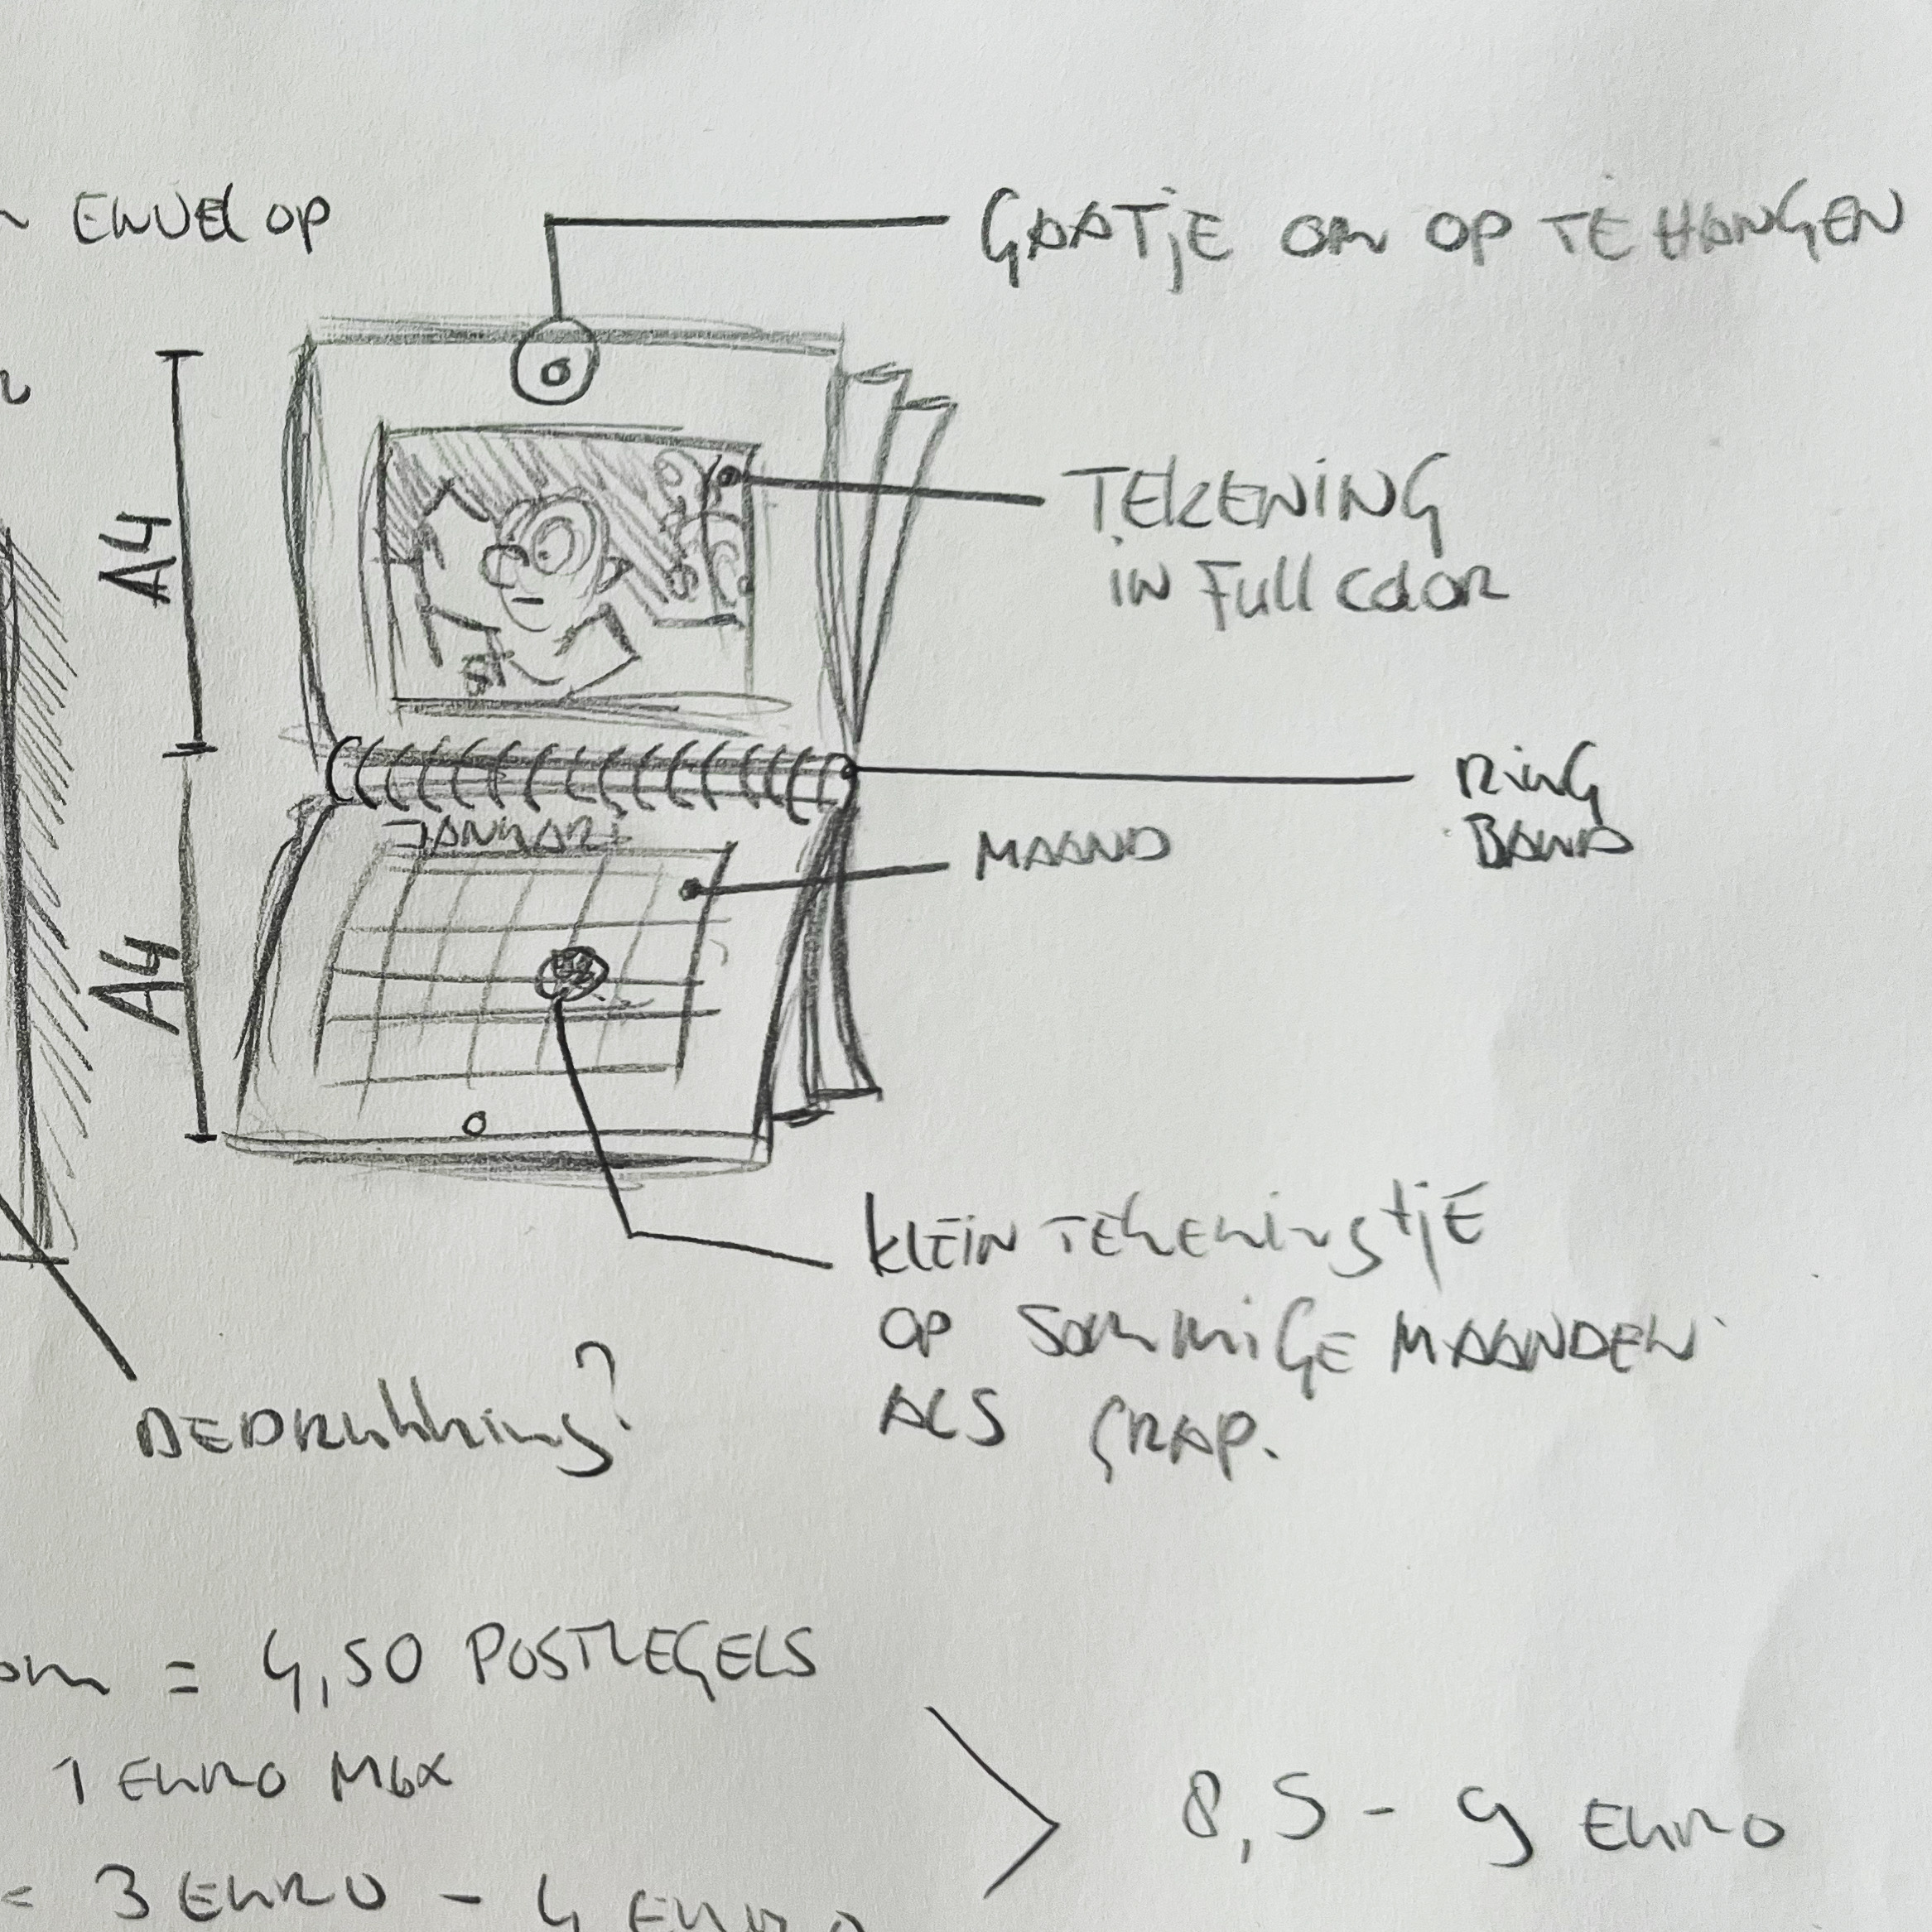 ENVELOP
GAATJE OM OP TE HANGEN
A4
TEKENING
IN FULL COLOR
RING
BAND
JANUARI
MAAND
A4
KLEIN TEKENINGSTJE
OP SOMMIGE MAANDEN
ALS GRAP.
BEDRUKKING?
= 4,50 POSTZEGELS
1 EURO MAX
8,5 - 9 EURO
= 3 EURO - 4 EURO